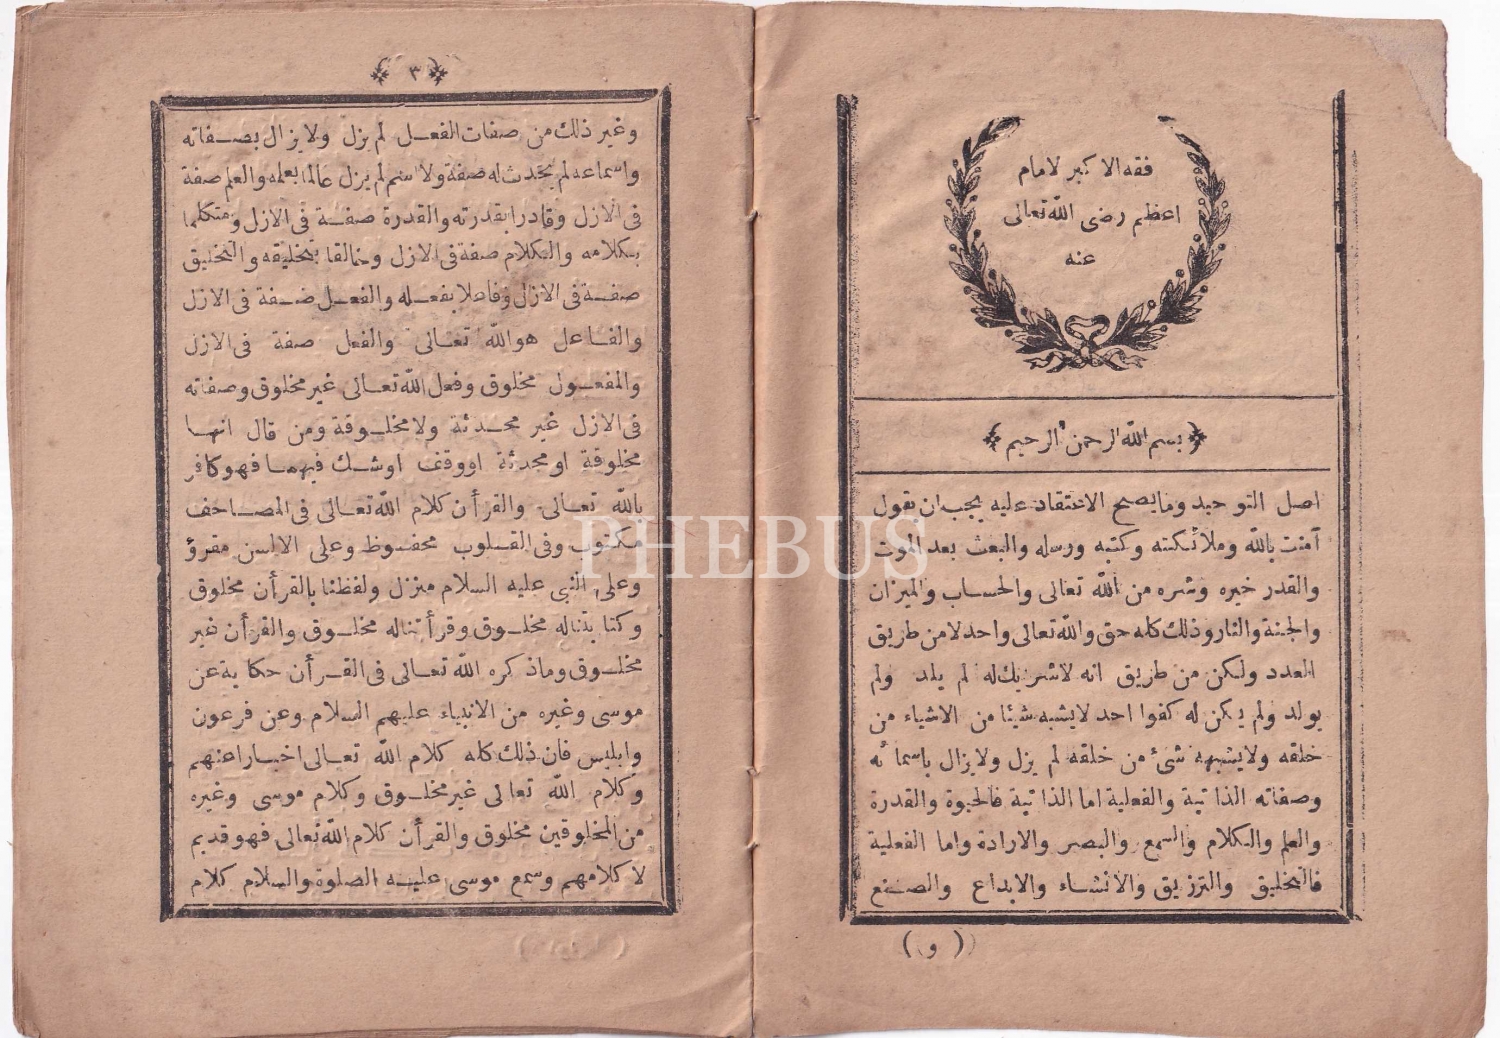 فقه الاكبر لامام
اعظم رضى الله تعالى
عنه
بسم الله الرحمن الرحيم
اصل التوحيد وما يصح الاعتقاد عليه يجب ان يقول
آمنت بالله وملائكته وكتبه ورسله والبعث بعد الموت
والقدر خيره وشره من الله تعالى والحساب والميزان
والجنة والنار وذلك كله حق والله تعالى واحد لا من طريق
العدد ولكن من طريق انه لا شريك له لم يلد ولم
يولد ولم يكن له كفوا احد لا يشبه شيئا من الاشياء من
خلقه ولا يشبهه شئ من خلقه لم يزل ولا يزال باسمائه
وصفاته الذاتية والفعلية اما الذاتية فالحيوة والقدرة
والعلم والكلام والسمع والبصر والارادة واما الفعلية
فالتخليق والترزيق والانشاء والابداع والصنع
(و)
٣
وغير ذلك من صفات الفعل لم يزل ولا يزال بصفاته
واسماءه لم يحدث له صفة ولا اسم لم يزل عالما بعلمه والعلم صفة
فى الازل وقادرا بقدرته والقدرة صفة فى الازل ومتكلما
بكلامه والكلام صفة فى الازل وخالقا بتخليقه والتخليق
صفة فى الازل وفاعلا بفعله والفعل صفة فى الازل
والفاعل هو الله تعالى والفعل صفة فى الازل
والمفعول مخلوق وفعل الله تعالى غير مخلوق وصفاته
فى الازل غير محدثة ولا مخلوقة ومن قال انها
مخلوقة او محدثة او وقف او شك فيهما فهو كافر
بالله تعالى والقرأن كلام الله تعالى فى المصاحف
مكتوب وفى القلوب محفوظ وعلى الالسن مقرؤ
وعلى النبى عليه السلام منزل ولفظنا بالقرأن مخلوق
وكتابتنا له مخلوق وقرأتنا له مخلوق والقرأن غير
مخلوق وما ذكره الله تعالى فى القرأن حكاية عن
موسى وغيره من الانبياء عليهم السلام وعن فرعون
وابليس فان ذلك كله كلام الله تعالى اخبارا عنهم
وكلام الله تعالى غير مخلوق وكلام موسى وغيره
من المخلوقين مخلوق والقرأن كلام الله تعالى فهو قديم
لا كلامهم وسمع موسى عليه الصلوة والسلام كلام
PHEBUS